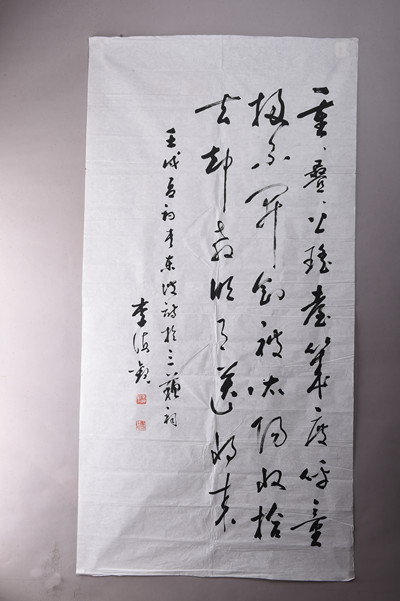 重重叠叠上瑶台几度呼童
扫不开刚被太阳收拾
去却教明月送将来
壬戌春初书东坡诗于三苏祠
李海